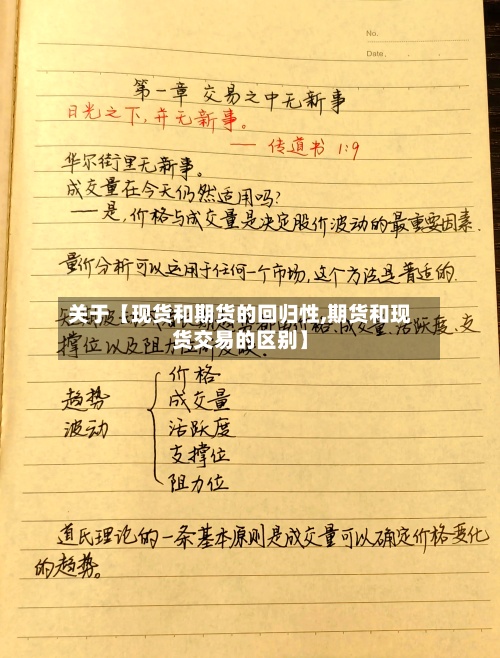 No.
Date.
第一章 交易之中无新事
日光之下，并无新事。
—— 传道书 1:9
华尔街里无新事。
成交量在今天仍然适用吗?
——是，价格与成交量是决定股价波动的最重要因素.
量价分析可以运用于任何一个市场，这个方法是普适的.
关于【现货和期货的回归性,期货和现
货交易的区别】
成交量、活跃度、支
撑位以及阻力位
趋势
波动
价格
成交量
活跃度
支撑位
阻力位
道氏理论的一条基本原则是成交量可以确定价格变化
的趋势。